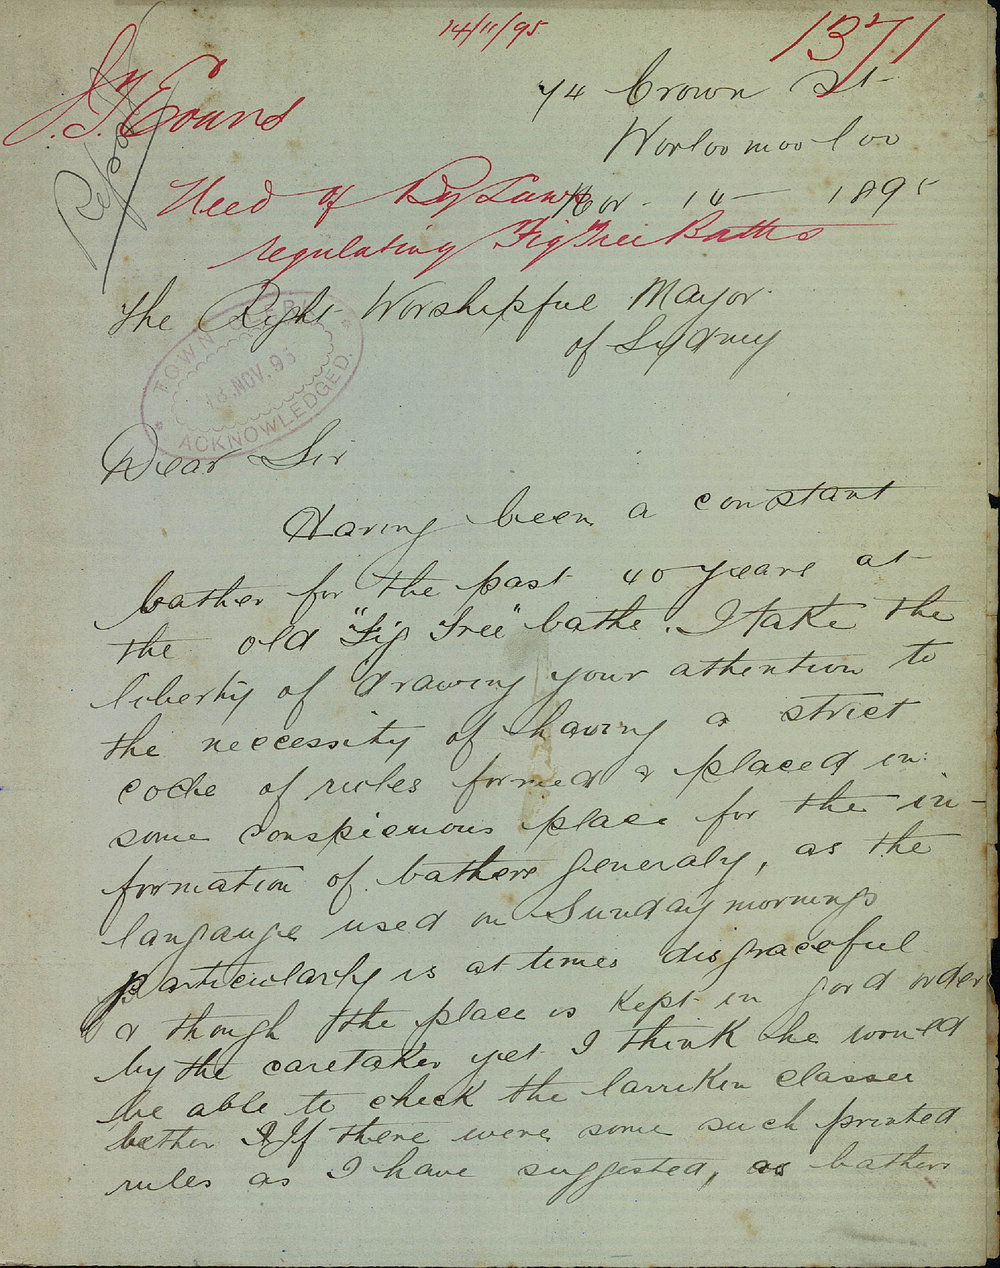 14/11/95
1371
J. T. Evans
74 Crown St
Worloomooloo
Need of By Laws
Nov - 14 - 1895
regulating Fig Tree Baths
The Right Worshipful Mayor
of Sydney
TOWN
18. NOV. 95
ACKNOWLEDGED.
Dear Sir
Having been a constant
bather for the past 40 years at
the old "Fig Tree" baths. I take the
liberty of drawing your athention to
the neccessity of having a strict
code of rules formed & placed in
some conspicuious place for the in-
formation of bathers generaly, as the
langauge used on Sunday mornings
particularly is at times disgraceful
& though the place is kept in good order
by the caretaker yet I think he would
be able to check the larriken classee
bether If there were some such printed
rules as I have suggested, as bathers